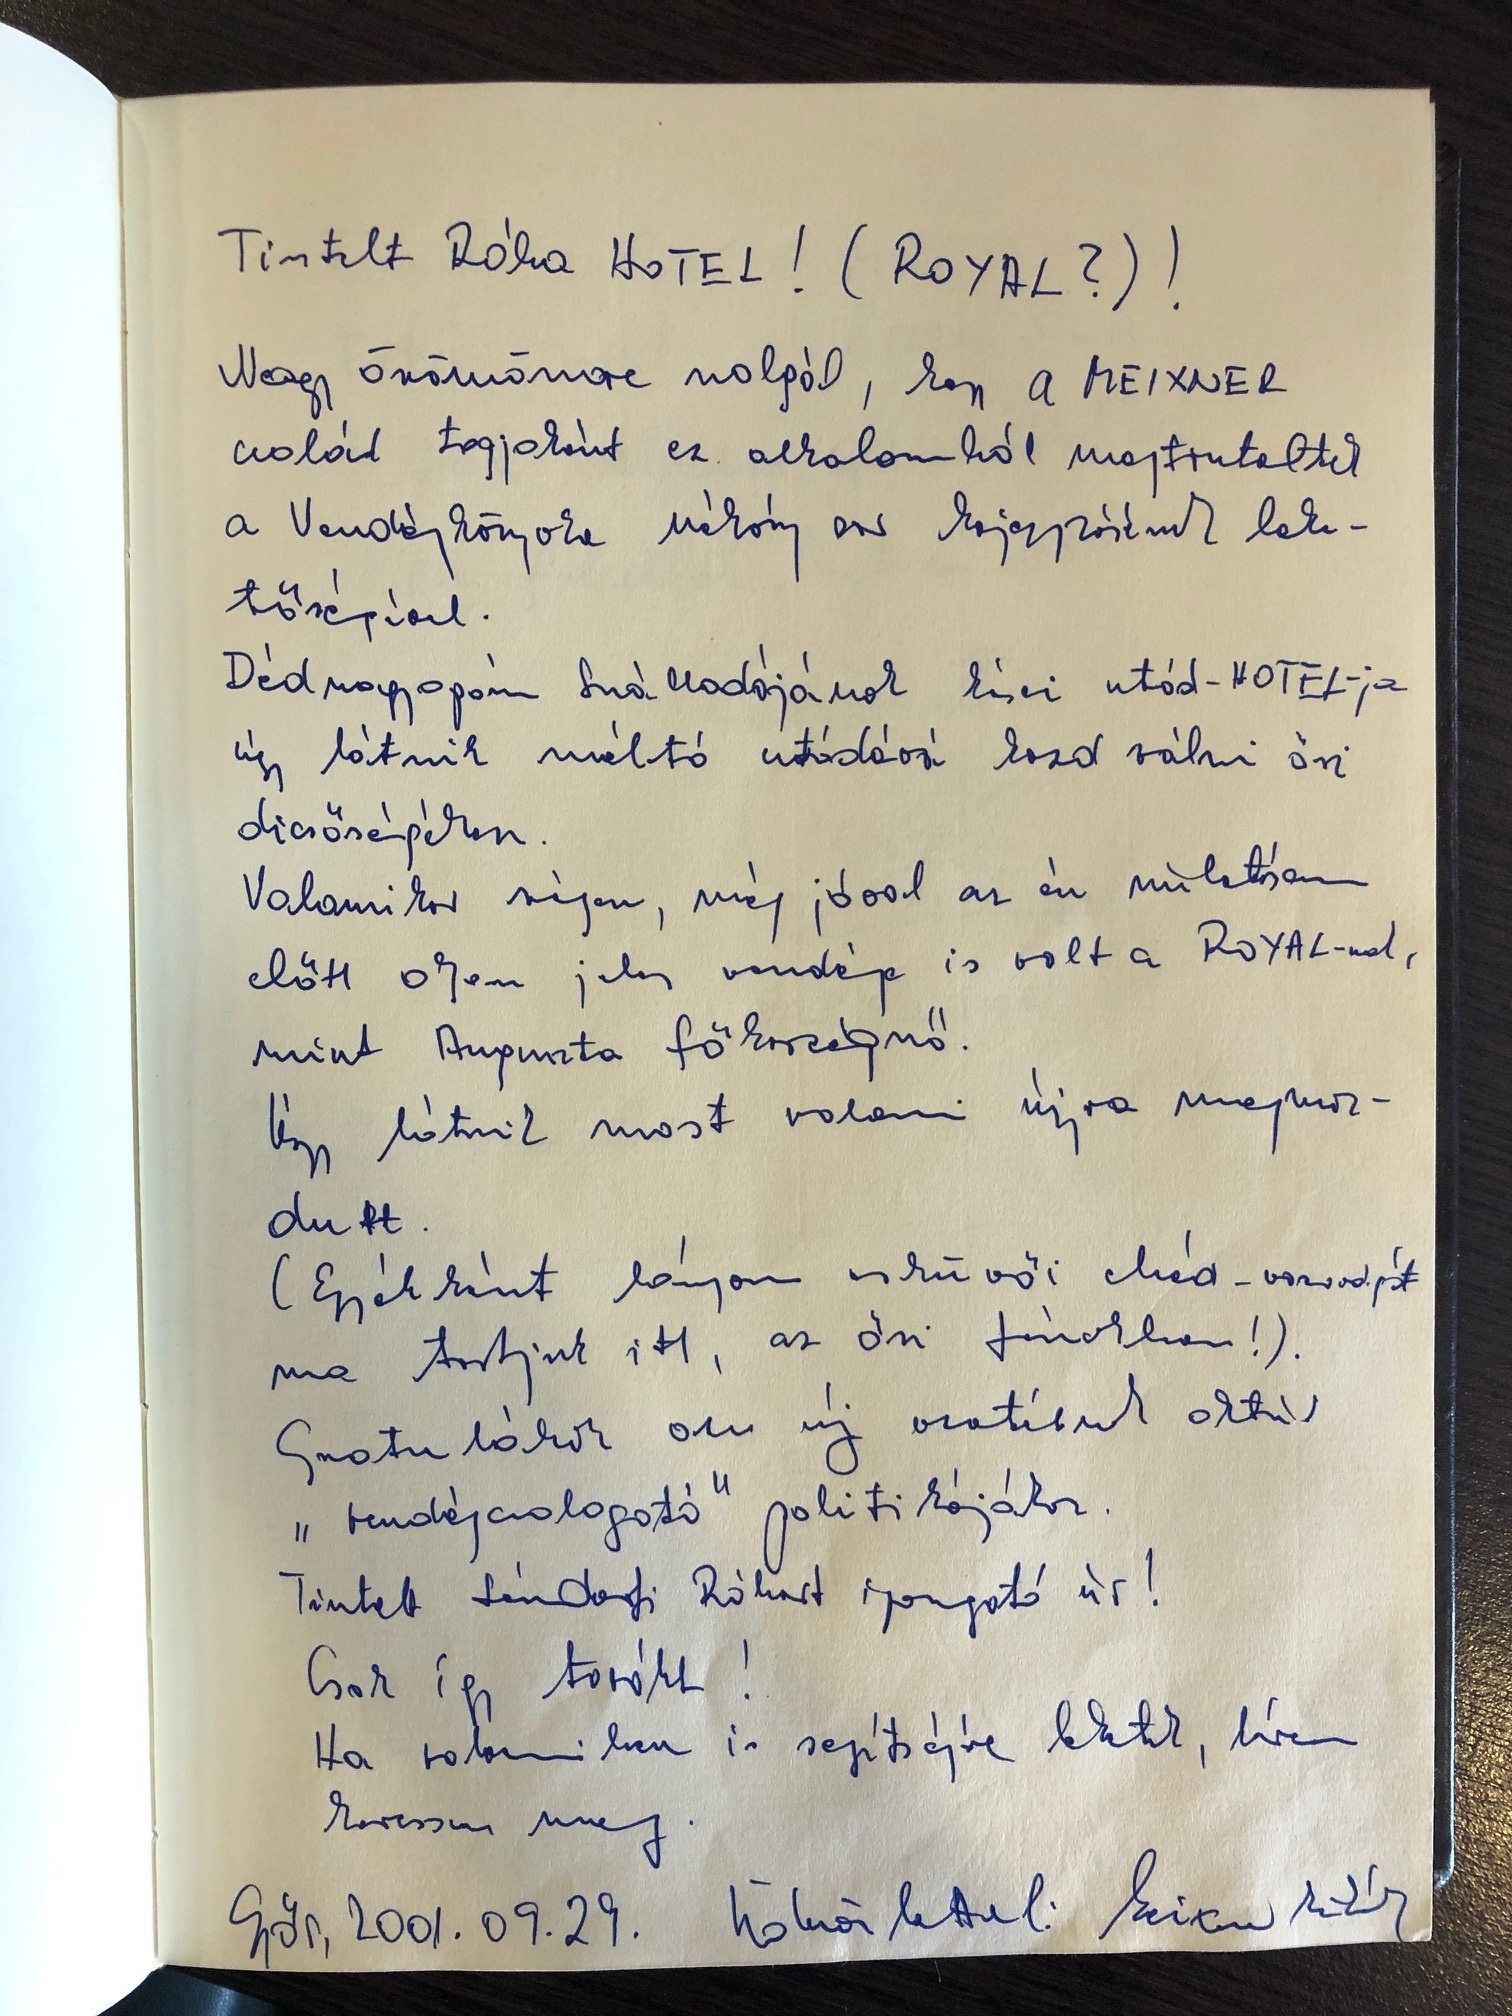 Tisztelt Rába HOTEL! (ROYAL?)!
Nagy örömömre szolgál, hogy a MEIXNER
család tagjaként ez alkalomból megtiszteltek
a Vendégkönyvbe néhány sor bejegyzésének lehe-
tőségével.
Dédnagyapám Szállodájának kései utód-HOTEL-ja
úgy látszik méltó utódává kezd válni ősi
dicsőségének.
Valamikor régen, még jóval az én születésem
előtt olyan jeles vendég is volt a ROYAL-nak,
mint Auguszta főhercegnő.
Úgy látszik most valami újra megmoz-
dult.
(Egyébként lányom esküvői ebéd-vacsoráját
ma tartjuk itt, az ősi fénykörben!).
Gratulálok az új vezetésnek aktív
„vendégcsalogató" politikájához.
Tisztelt Sándorfi Róbert igazgató úr!
Csak így tovább!
Ha valamiben is segítségére lehetek, kérem
keressen meg.
Győr, 2001. 09. 29. Üdvözlettel: Meixner